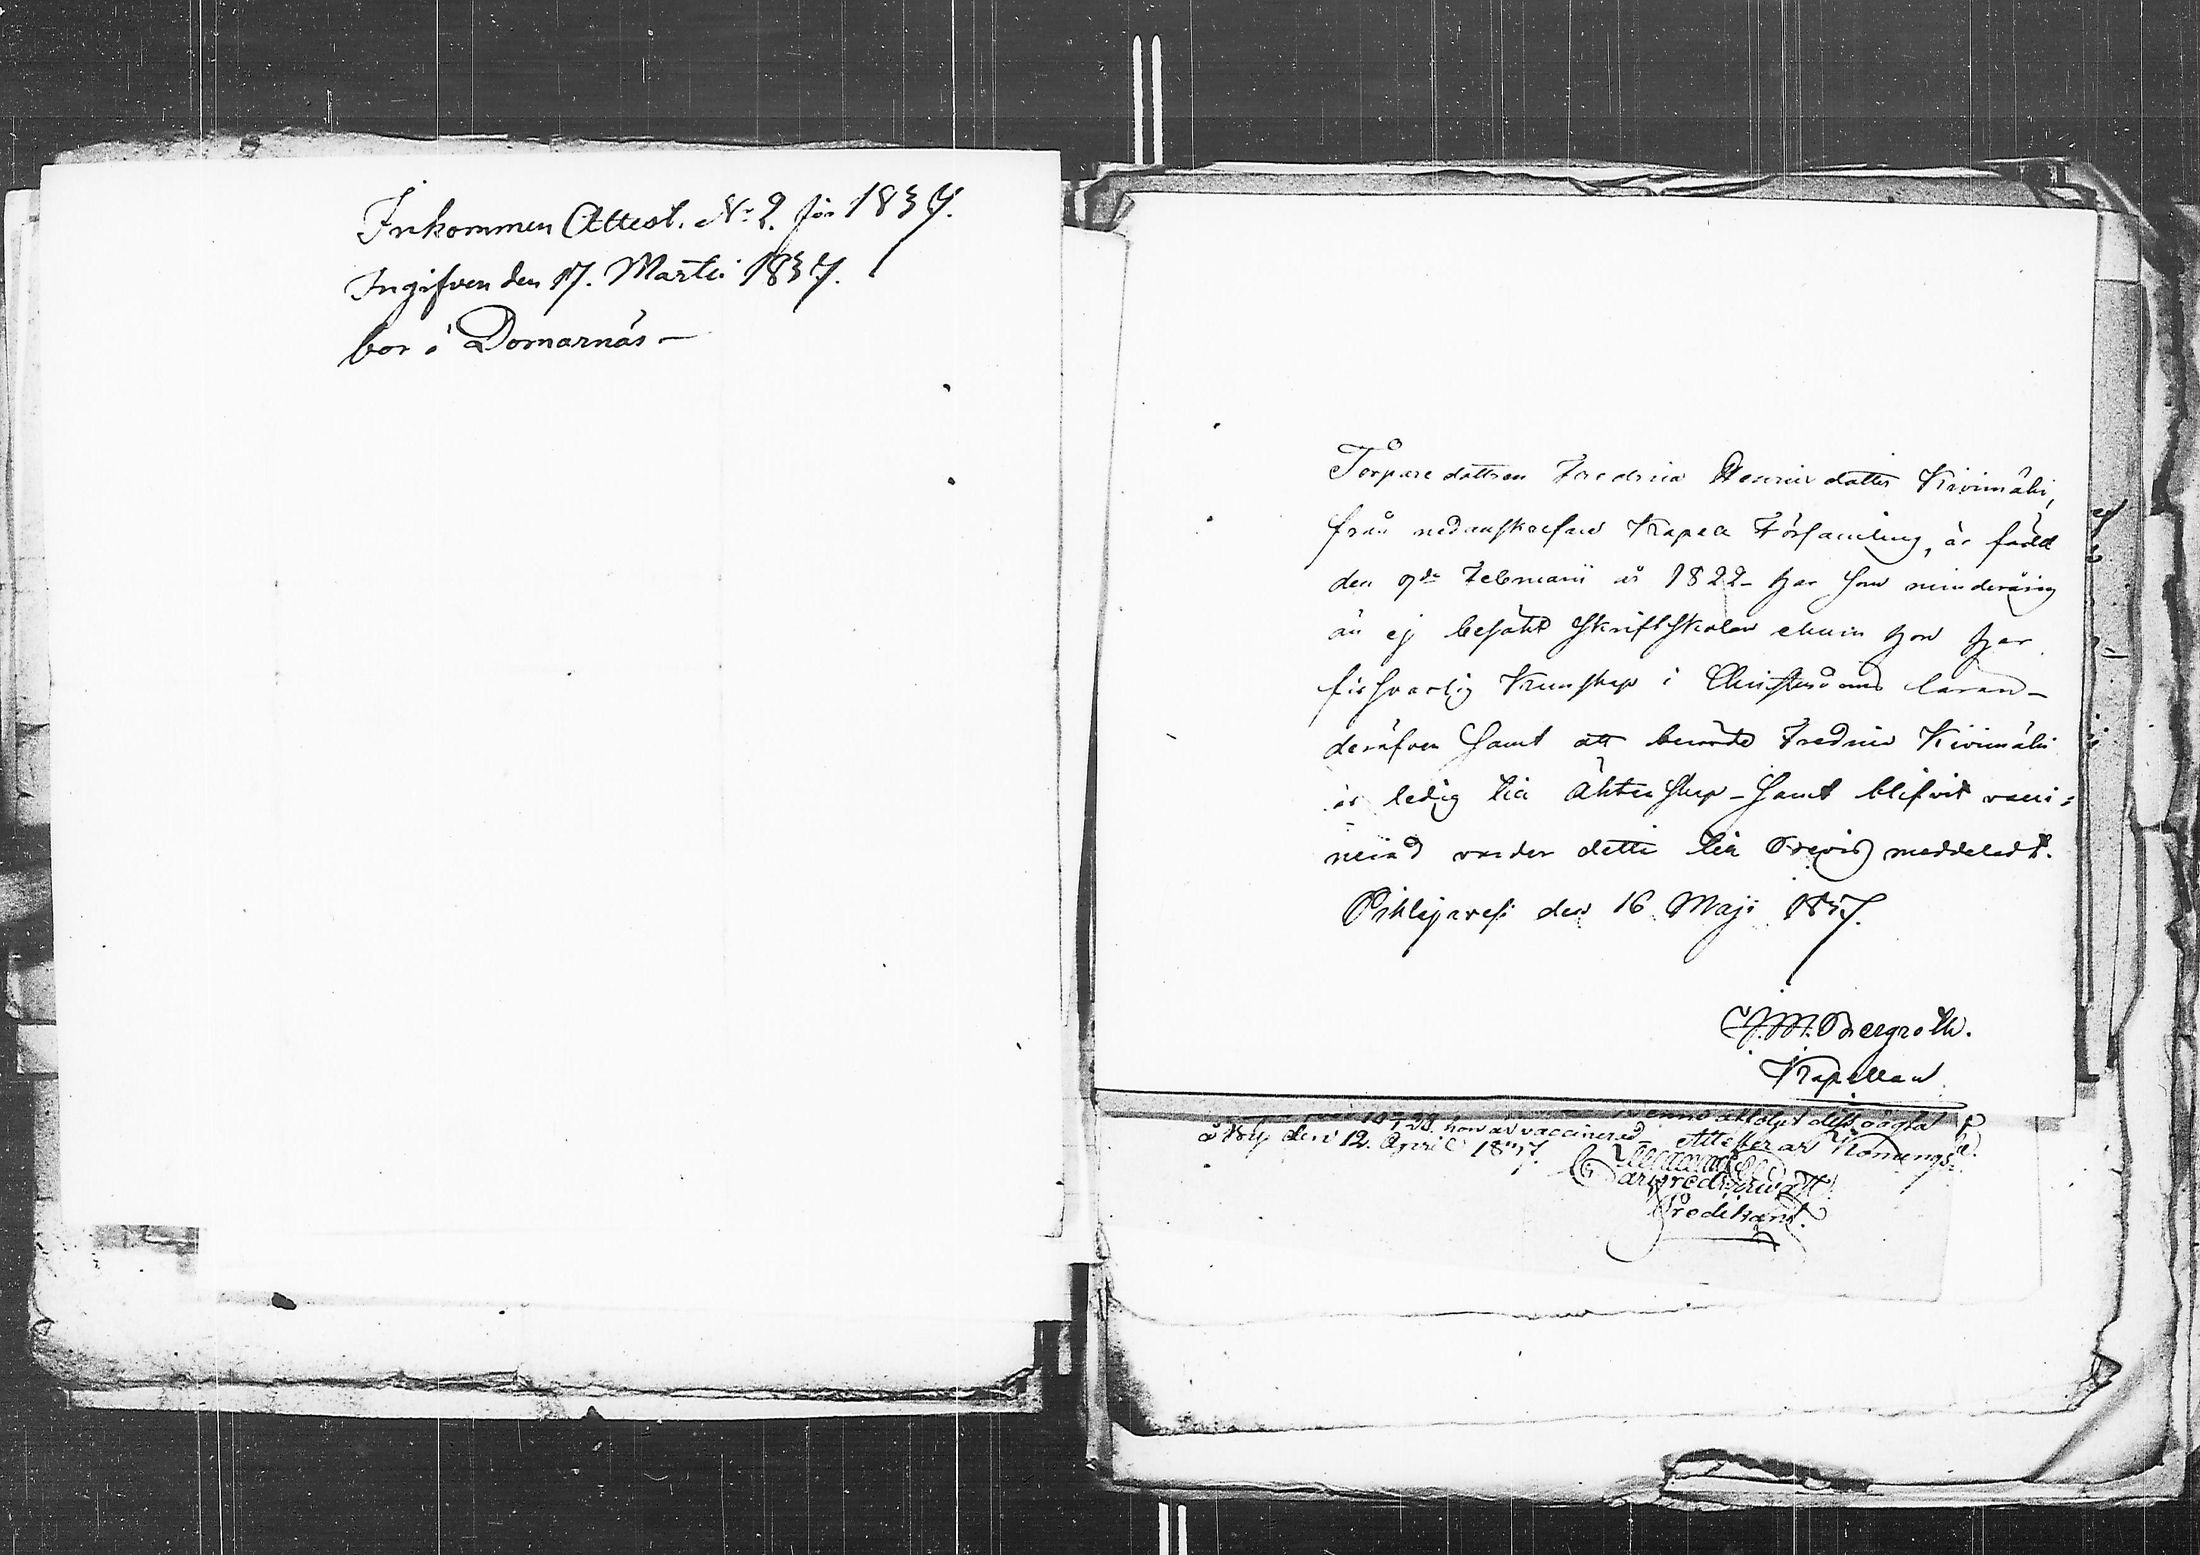 Inkommen Attest. No 2. för 1837.
Ingifven den 17. Martii 1837.
bor i Domarnäs –
Torpare dottren Fredrica Henrics dotter Kivimäki,
från nedanskrefne Kapell Församling, är född
den 9de Februarii år 1822 – har som minderårig
än ej besökt Skriftskolan ehuru hon har
försvarlig Kunskap i Christendoms läran –
derafven samt att berörde Fredrica Kivimäki
är ledig till Äktenskap – Samt blifvit vacci=
nerad varder detta till bevis meddeladt.
Pihlajavesi den 16 Maji 1837.
J. M. Bergroth.
Kapellan
hon är vaccinered Attesterar
den 12. April 1837.
Predikant.